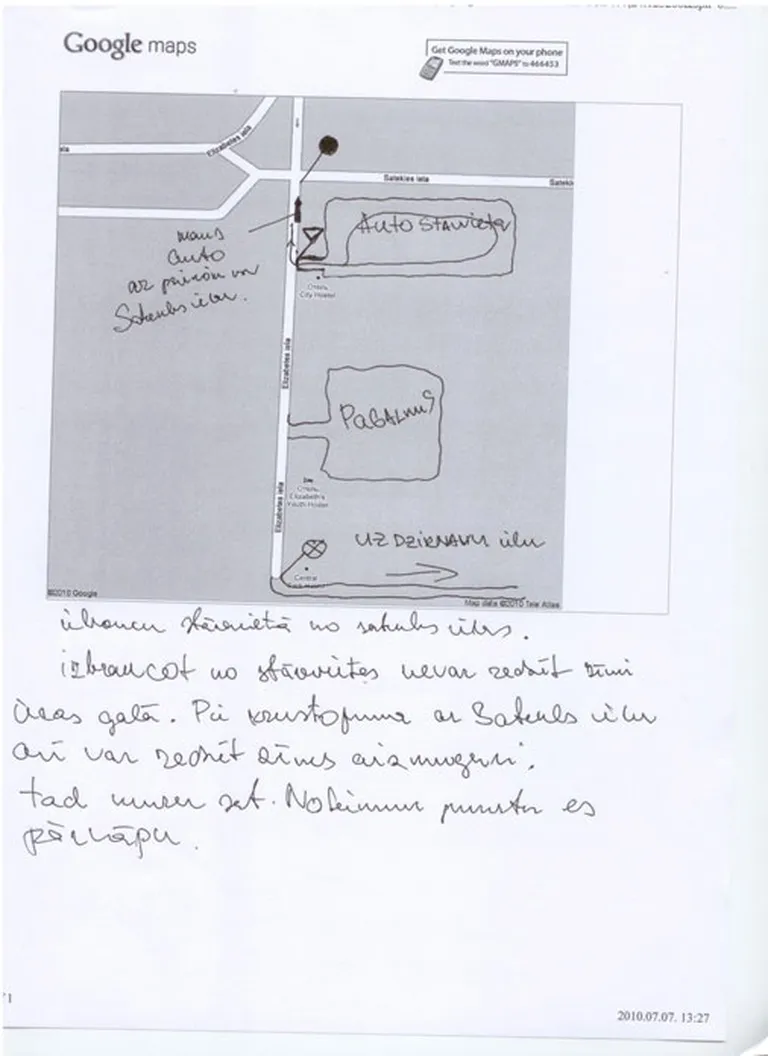 Google maps
Get Google Maps on your phone
Text the word "GMAPS" to 466453
Elizabetes iela
Satekles iela
AutoStāvvieta
mans
auto
ar
Satekles ielu.
City Hostel
Elizabetes iela
PAGALMS
Elizabeth's
Youth Hostel
Elizabetes iela
UZ DZIRNAVU ielu
Central
©2010 Google
Map data ©2010 Tele Atlas
iebraucu stāvvietā no satekles ielas.
izbraucot no stāvvietas nevar redzēt zīmi
ielas galā. Pie krustojuma ar Satekles ielu
arī var redzēt zīmes
tad
es
pārkāpu.
2010.07.07. 13:27